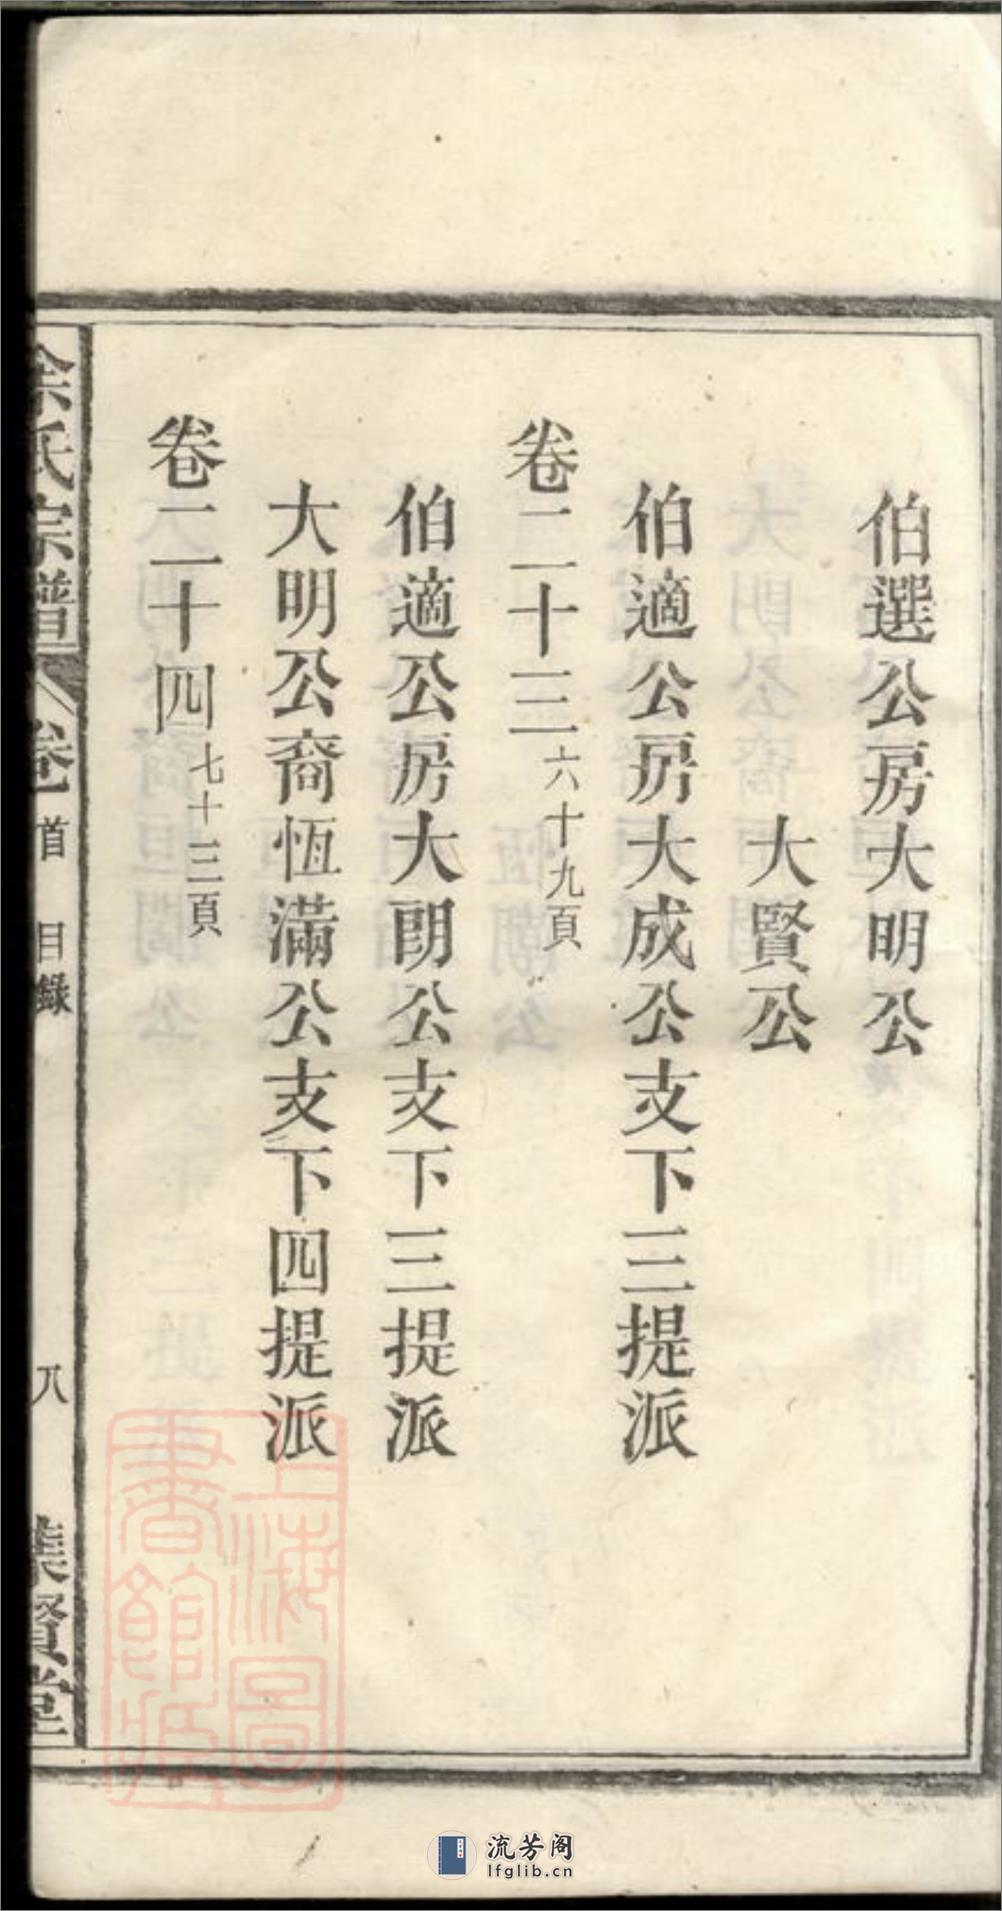 伯選公房大明公
大賢公
伯適公房大成公支下三提派
卷二十三 六十九頁
伯適公房大朗公支下三提派
大明公裔恆滿公支下四提派
卷二十四 七十三頁
氏宗譜 卷首 目錄 八 集賢堂
上海圖書館藏
流芳阁
lfglib.cn